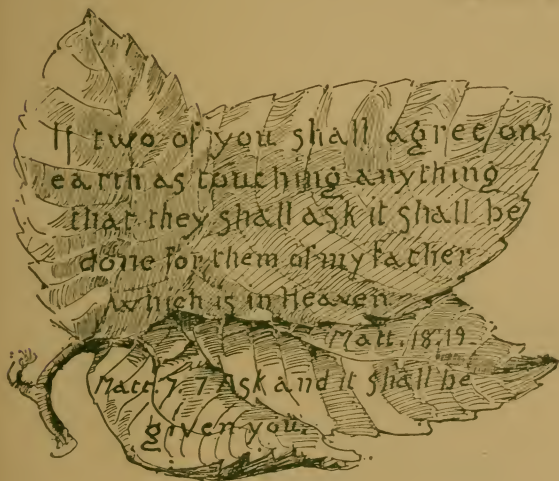 If two of you shall agree on
earth as touching anything
that they shall ask it shall be
done for them of my father
which is in Heaven
Matt. 18.19.
Matt. 7 7 Ask and it shall be
given you.